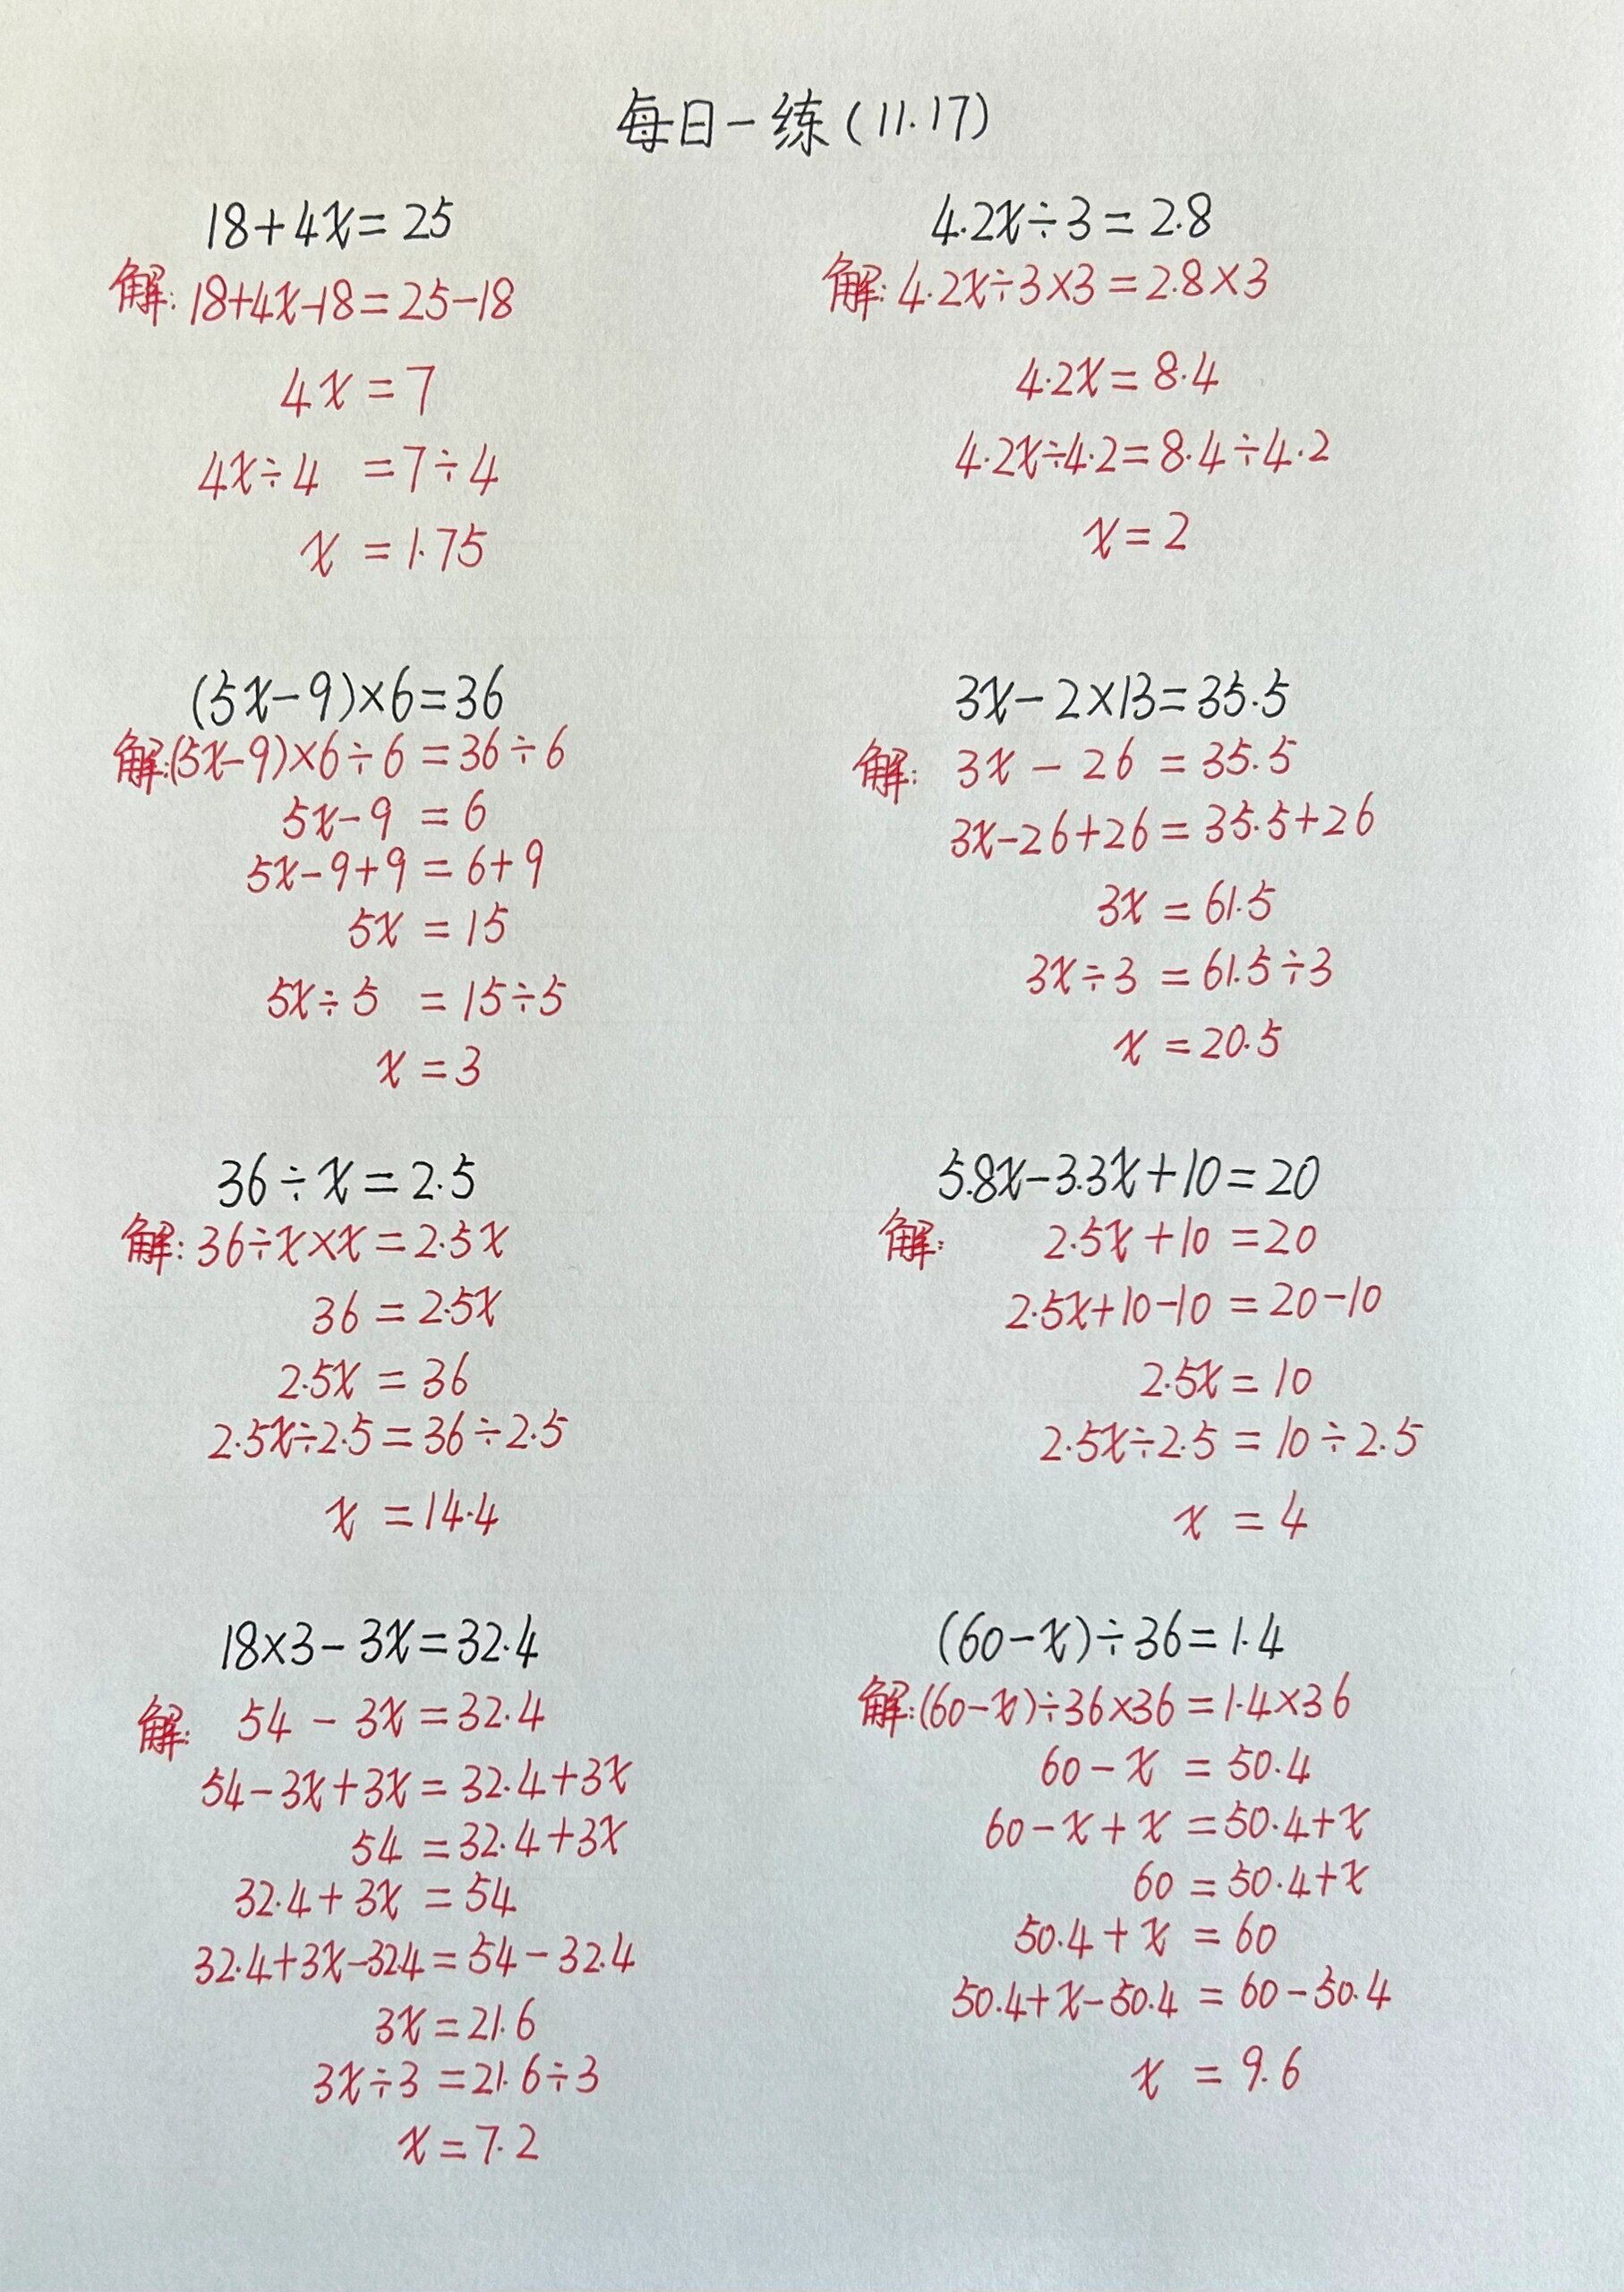 每日一练(11.17)
18+4x=25
解:18+4x-18=25-18
4x=7
4x÷4=7÷4
x=1.75
4.2x÷3=2.8
解:4.2x÷3×3=2.8×3
4.2x=8.4
4.2x÷4.2=8.4÷4.2
x=2
(5x-9)×6=36
解:(5x-9)×6÷6=36÷6
5x-9=6
5x-9+9=6+9
5x=15
5x÷5=15÷5
x=3
3x-2×13=35.5
解:3x-26=35.5
3x-26+26=35.5+26
3x=61.5
3x÷3=61.5÷3
x=20.5
36÷x=2.5
解:36÷x×x=2.5x
36=2.5x
2.5x=36
2.5x÷2.5=36÷2.5
x=14.4
5.8x-3.3x+10=20
解:2.5x+10=20
2.5x+10-10=20-10
2.5x=10
2.5x÷2.5=10÷2.5
x=4
18×3-3x=32.4
解:54-3x=32.4
54-3x+3x=32.4+3x
54=32.4+3x
32.4+3x=54
32.4+3x-32.4=54-32.4
3x=21.6
3x÷3=21.6÷3
x=7.2
(60-x)÷36=1.4
解:(60-x)÷36×36=1.4×36
60-x=50.4
60-x+x=50.4+x
60=50.4+x
50.4+x=60
50.4+x-50.4=60-50.4
x=9.6